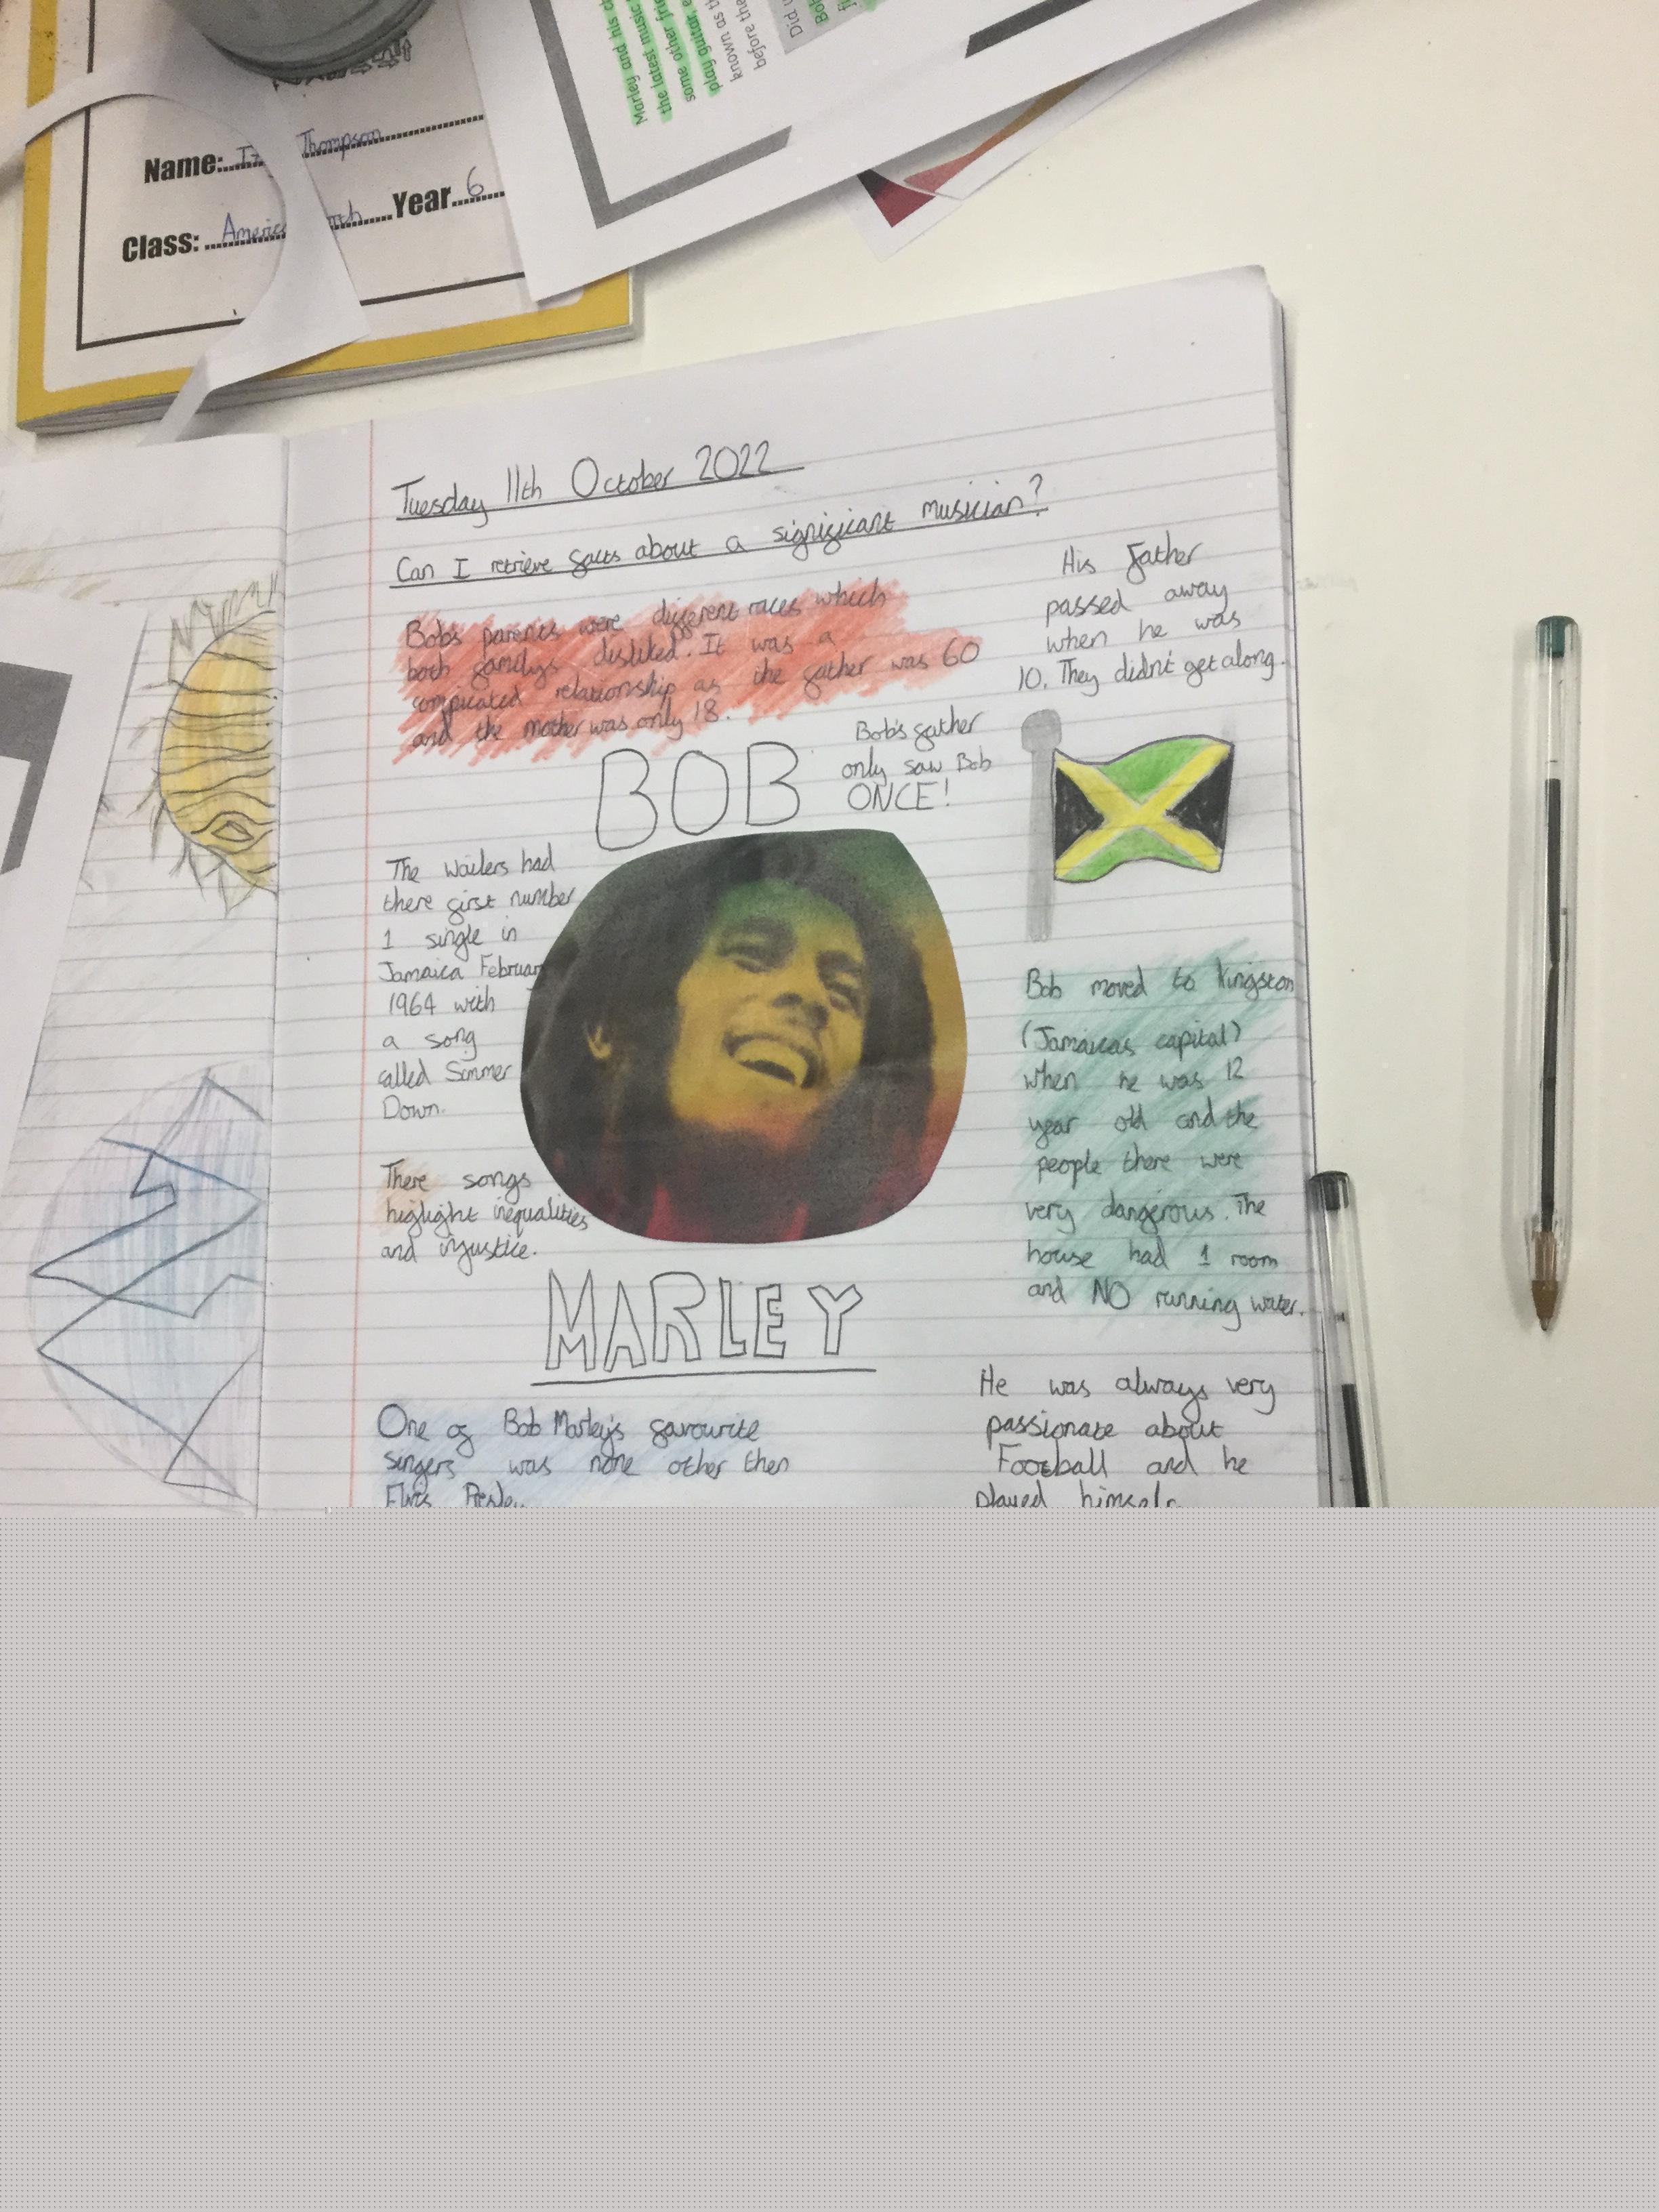 Marley and his
the latest music
some other
play guitar,
known as
before the
Did
Name: Thompson
Class: Year 6
Tuesday 11th October 2022
Can I retrieve facts about a significant musician?
Bob's parents were different races which
both familys disliked. It was a
complicated relationship as the father was 60
and the mother was only 18.
His Father
passed away
when he was
10. They didn't get along.
BOB
Bob's father
only saw Bob
ONCE!
The Wailers had
there first number
1 single in
Jamaica February
1964 with
a song
called Simmer
Down.
There songs
highlight inequalities
and injustice.
MARLEY
Bob moved to Kingston
(Jamaicas capital)
when he was 12
year old and the
people there were
very dangerous. The
house had 1 room
and NO running water.
One of Bob Marley's favourite
singers was none other then
Elvis Presley
He was always very
passionate about
Football and he
played himself